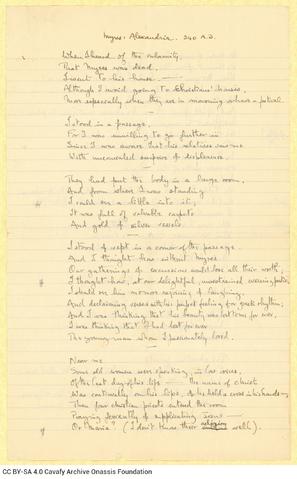 Myres: Alexandria. 340 A.D.
When I heard of the calamity,
That Myres was dead,
I went to his house —
Although I avoid going to Christians' houses,
More especially when they are in mourning or have a festival.
I stood in a passage —
For I was unwilling to go further in
Since I was aware that his relatives saw me
With unconcealed surprise & displeasure.
They had put the body in a large room,
And from where I was standing
I could see a little into it;
It was full of valuable carpets
And gold & silver vessels.
I stood & wept in a corner of the passage
And I thought how without Myres
Our gatherings & excursions would lose all their worth;
I thought how, at our delightful, unrestrained evening parties,
I should see him no more rejoicing & laughing,
And declaiming verses with his perfect feeling for greek rhythm;
And I was thinking that his beauty was lost to me for ever,
I was thinking that I had lost for ever
The young man whom I passionately loved.
Near me
Some old women were speaking, in low voices,
Of the last day of his life — the name of Christ
Was continually on his lips, & he held a cross in his hands —
Then four christian priests entered the room
Praying fervently & supplicating Jesus —
Or Maria? (I don't know their religion well).
CC BY-SA 4.0 Cavafy Archive Onassis Foundation